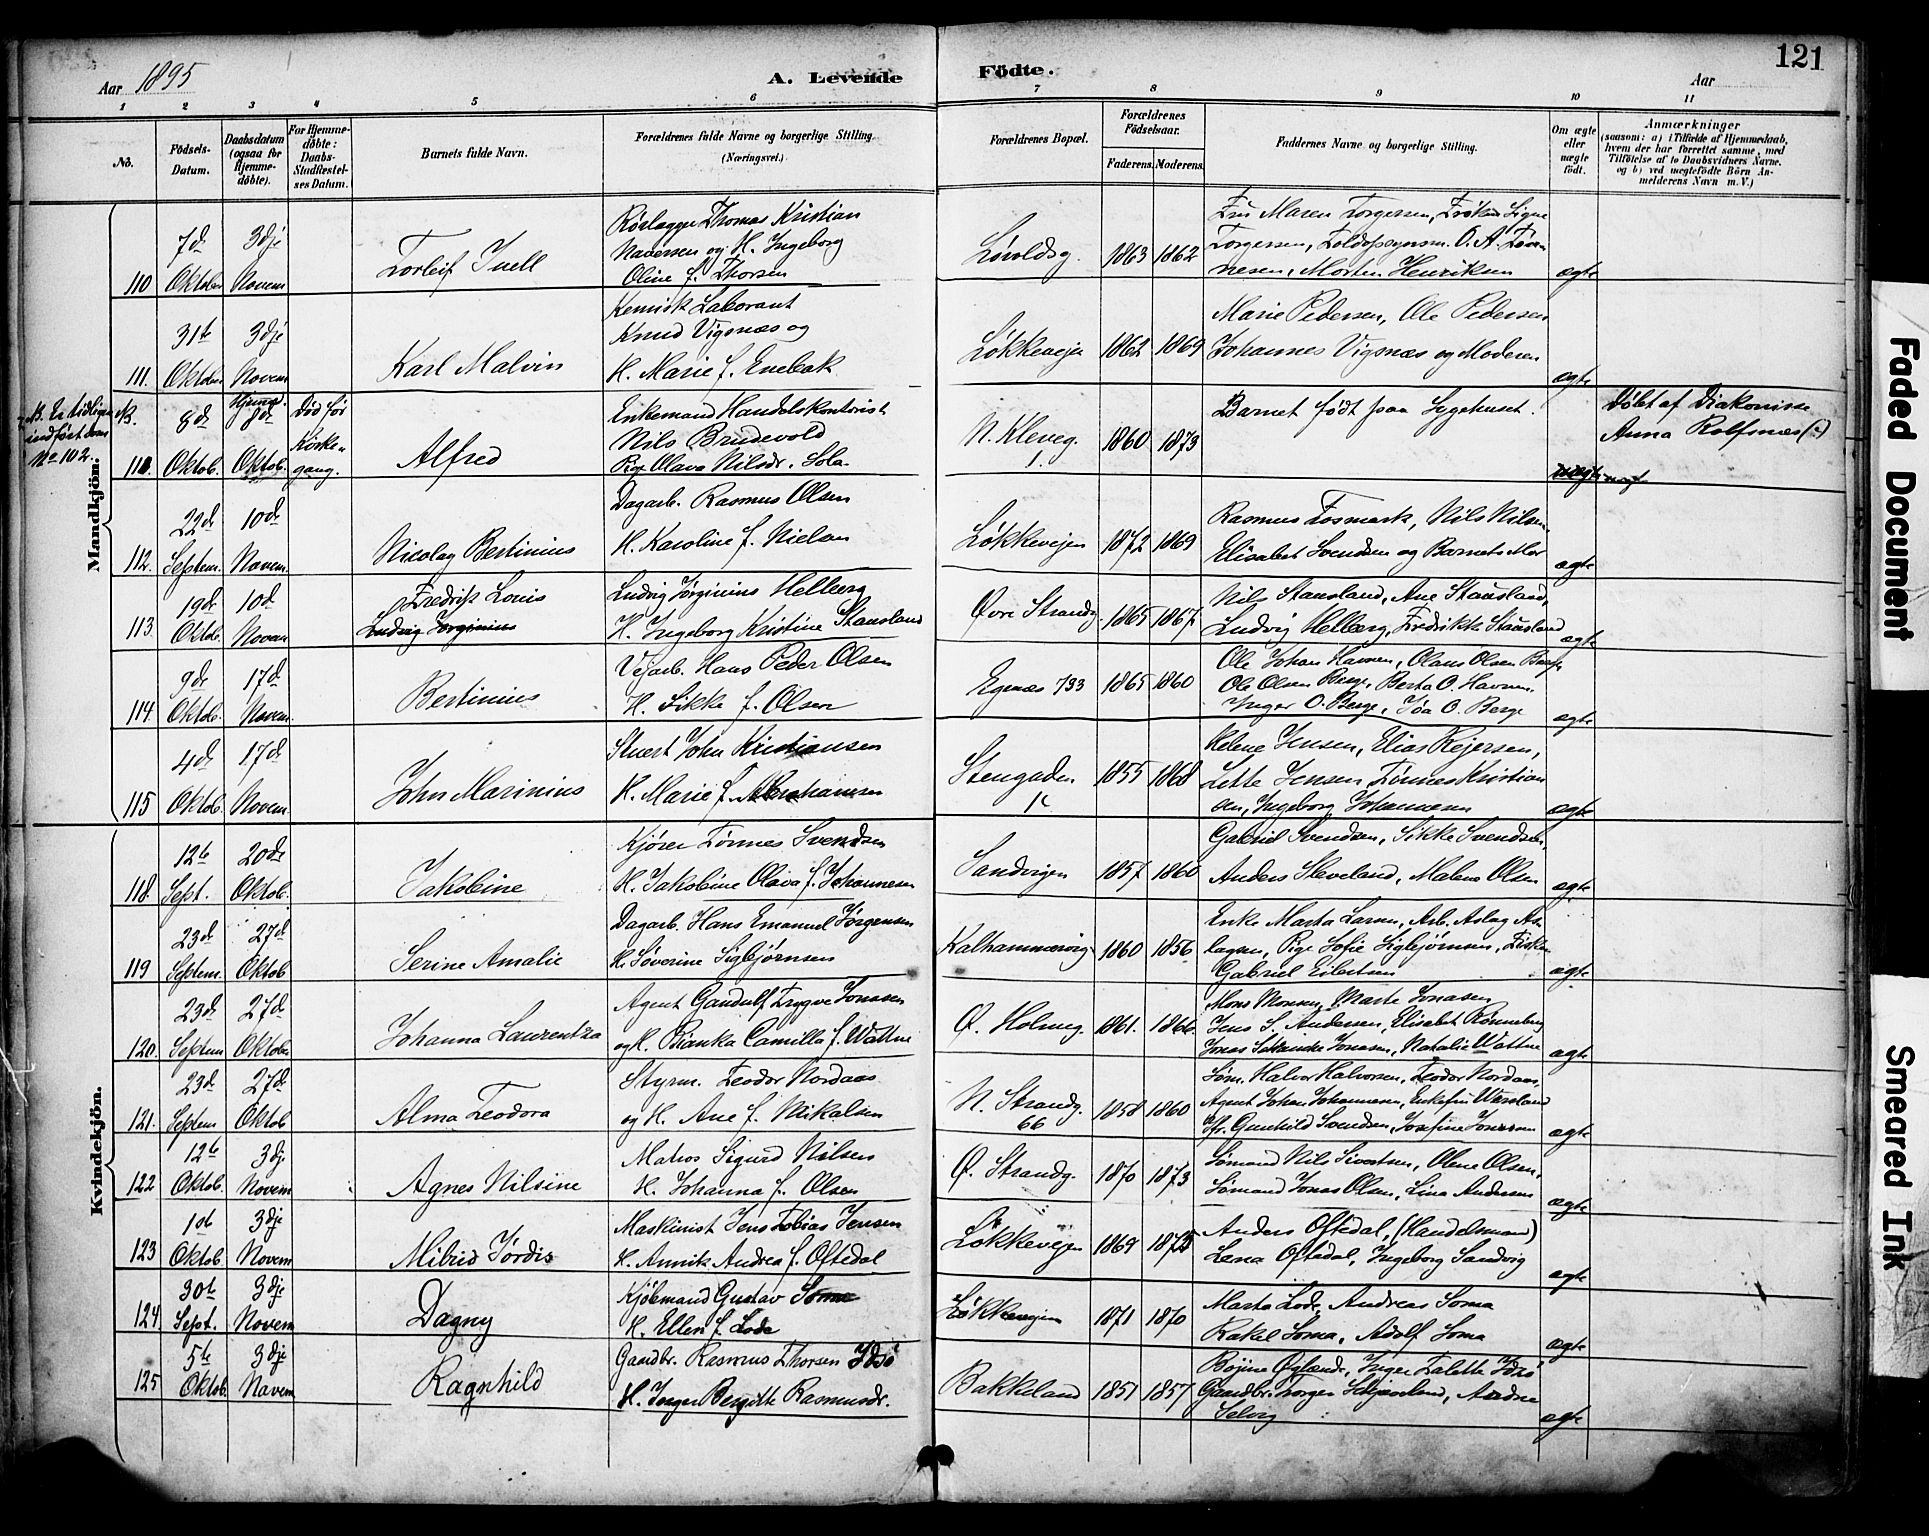 121
Aar 1895
A. Levende Födte.
Aar
1 2 3 4 5 6 7 8 9 10 11
No.
Födsels-Datum.
Daabsdatum (ogsaa for Hjemme-döbte).
For Hjemme-döbte: Daabs-Stadfæstel-ses Datum.
Barnets fulde Navn.
Forældrenes fulde Navne og borgerlige Stilling. (Næringsvei.)
Forældrenes Bopæl.
Forældrenes Födselsaar.
Faderens. Moderens.
Faddernes Navne og borgerlige Stilling.
Om ægte eller uægte födt.
Anmærkninger
(saasom: a) i Tilfælde af Hjemmedaab,
hvem der har forrettet samme, med
Tilföielse af to Daabsvidners Navne.
og b) ved uægtefödte Börn An-
melderens Navn m. V.)
Mandkjön.
110 7de Oktober 3dje Novem
Torleif Juell
Rørlægger Thomas Kristian
og H. Ingeborg
Oline f. Thorsen
Løvoldsg. 1863 1862
Fru Maren Torgersen, Frøken Signe
Torgersen, O. A.
Morten Henriksen
ægte
111. 31te Oktober 3dje Novem
Karl Malvin
Kemisk Laborant
Knud Vigsnæs og
H. Marie f. Enebak
Løkkeveien 1862 1869
Marie Pedersen, Ole Pedersen
Johannes Vigsnæs og Moderen
ægte
NB. Er tidligere
indført som
No 102.
8de Oktob. Hjemmed. 8de Oktob.
Død før
Kirke-
gang.
Alfred
Enkemand Handelskontorist
Nils Brudevold
Pige Olava Nilsdr. Sola
N. Kleveg. 1. 1860 1873
Barnet født paa Sygehuset.
uægte
Døbt af Diakonisse
Anna Rolfsnæs
112. 22de Septem. 10de Novem.
Nicolay Bertinius
Dagarb. Rasmus Olsen
H. Karoline f. Nielsen
Løkkeveien 1872 1869
Rasmus Fosmark, Nils Nilsen
Elisabet Svendsen og Barnets Mor
ægte
113. 19de Oktob. 10de Novem
Fredrik Louis
Ludvig Jørginius
Ludvig Jørginius Helberg
H. Ingeborg Kristine Stausland
Øvre Strandg. 1865 1867
Nils Stausland, Ane Stausland,
Ludvig Helberg, Fredrikke Stausland
ægte
114. 9de Oktob. 17de Novem.
Bertinius
Veiarb. Hans Peder Olsen
H. Sikke f. Olsen
Egenæs 733 1865 1860
Ole Johan Havnen, Olaus Olsen Berge
Ole Olsen Berge, Berta O. Havnen
Inger O. Berge, O. Berge
ægte
115 4de Oktob. 17de Novem.
John Marinius
Stuert John Kristiansen
H. Marie f. Abrahamsen
Stengaden 1855 1868
Helene Jensen, Elias Rejersen,
Litte Jensen, Tønnes Kristian
sen, Ingeborg Johannesen
ægte
Kvindekjön.
118. 12te Sept. 20de Oktob.
Jakobine
Kjører Tønnes Svendsen
H. Jakobine Olava f. Johannesen
Sandvigen 1857 1860
Gabriel Svendsen, Sikke Svendsen,
Anders Sleveland, Malene Olsen
ægte
119 23de Septem. 27de Oktob
Serine Amalie
Dagarb. Hans Emanuel Jørgensen
H. Søverine Sigbjørnsen
Kalhammervig 1860 1856
Enke Marta Larsen, Arb. Aslag As-
lagsen, Pige Sofie Sigbjørnsen, Fisker
Gabriel Eilertsen
ægte
120. 23de Septem 27de Oktober
Johanna Laurentza
Agent Gandulf Trygve Jonasen
og H. Bianka Camilla f. Wattne
Ø. Holmeg. 1861. 1866.
Mons Monsen, Marte Jonasen
Jens S. Andersen, Elisabet Rønneberg
Jonas Jonasen, Natalie Wattne
ægte
121. 23de Septem 27de Oktob
Alma Teodora
Styrm. Teodor Nordaas
og H. Ane f. Mikalsen
N. Strandg. 66 1858 1860
Søm. Halvor Halvorsen, Teodor Nordaas,
Agent Johan Johannesen,
Gunhild Svendsen, Josefine
ægte
122 12te Oktob. 3dje Novem
Agnes Nilsine
Matros Sigurd Nilsen
H. Johanna f. Olsen
Ø. Strandg. 1870 1873
Sømand Nils Sivertsen, Olene Olsen,
Sømand Jonas Olsen, Lina Andersen
ægte
123 1ste Oktob. 3dje Novem
Milrid Jørdis
Maskinist Jens Tobias Jensen
H. Annik Andrea f. Oftedal
Løkkeveien 1869
Anders Oftedal, (Handelsmand)
Lena Oftedal, Ingeborg Sandvig
ægte
124 30te Sept. 3dje Novem
Dagny
Kjøbmand Gustav Soma
H. Ellen f. Lode
Løkkeveien 1871 1870
Marta Lode, Andreas Soma
Rakel Soma, Adolf Soma
ægte
125 5te Oktob. 3dje Novem
Ragnhild
Gaardbr. Rasmus Thorsen Idsø
H. Inger Bergitte Rasmusdr.
Bakkeland 1851 1857
Inger Talette Idsø
Gaardbr.
Selvig
ægte
Faded Document
Smeared Ink